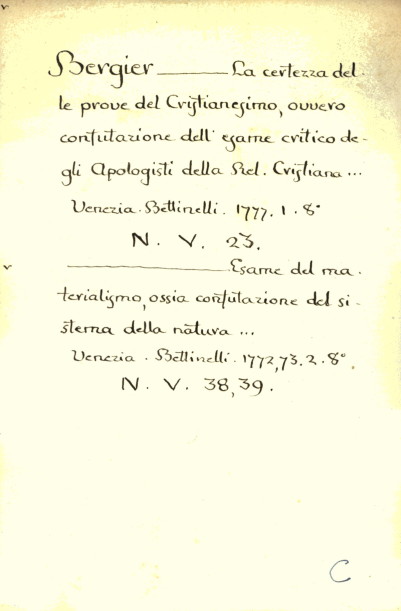 Bergier ——— La certezza del-
le prove del Cristianesimo, ovvero
confutazione dell' esame critico de-
gli Apologisti della Rel. Cristiana ...
Venezia. Bettinelli. 1777. 1. 8°
N. V. 23.
——————— Esame del ma-
terialismo, ossia confutazione del si-
stema della natura ...
Venezia. Bettinelli. 1772,73. 2. 8°.
N. V. 38,39.
C